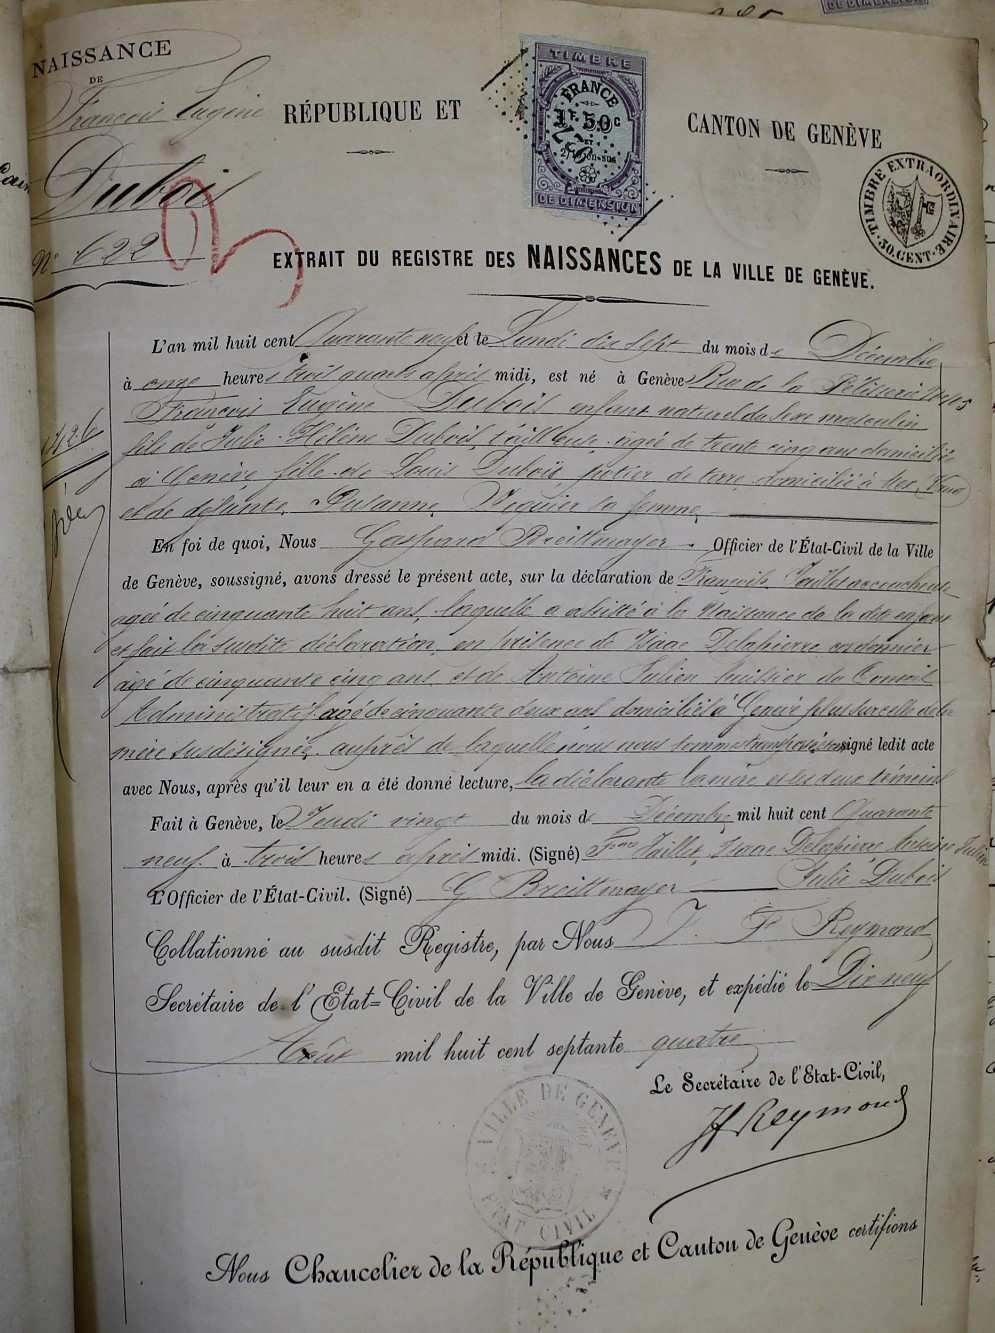 NAISSANCE
DE
François Eugène
Dubois
N° 622
RÉPUBLIQUE ET
CANTON DE GENÈVE
TIMBRE
FRANCE
1F 50C
DE DIMENSION
TIMBRE EXTRAORDINAIRE
50. CENT.
EXTRAIT DU REGISTRE DES NAISSANCES DE LA VILLE DE GENÈVE.
L'an mil huit cent Quarante neuf et le Lundi dix sept du mois de Décembre
à onze heures trois quarts après midi, est né à Genève Rue de la Pélisserie
François Eugène Dubois enfant naturel du sexe masculin
fils de Julie Hélène Dubois, tailleuse, agée de trente cinq ans domiciliée
à Genève fille de Louis Dubois, potier de terre, domicilié à
et de défunte Susanne sa femme
En foi de quoi, Nous Gaspard Breittmayer Officier de l'État-Civil de la Ville
de Genève, soussigné, avons dressé le présent acte, sur la déclaration de Françoise accoucheuse
agée de cinquante huit ans, laquelle a assisté à la Naissance du dit enfant
et fait la susdite déclaration, en présence de Isaac Delapierre cordonnier
agé de cinquante cinq ans, et de Antoine Julien huissier du Conseil
Administratif agé de cinquante deux ans domiciliés à Genève plus celle de la
mère susdésignée, auprès de laquelle nous nous sommes transportés signé ledit acte
avec Nous, après qu'il leur en a été donné lecture, la déclarante la mère et les deux témoins
Fait à Genève, le Jeudi vingt du mois de Décembre mil huit cent Quarante
neuf à trois heures après midi. (Signé) Isaac Delapierre Antoine Julien
L'Officier de l'État-Civil. (Signé) G Breittmayer Julie Dubois
Collationné au susdit Registre, par Nous J. F Reymond
Secrétaire de l'Etat=Civil de la Ville de Genève, et expédié le Dix neuf
Août mil huit cent septante quatre
Le Secrétaire de l'Etat-Civil,
JF Reymond
VILLE DE GENÈVE
ETAT CIVIL
Nous Chancelier de la République et Canton de Genève certifions